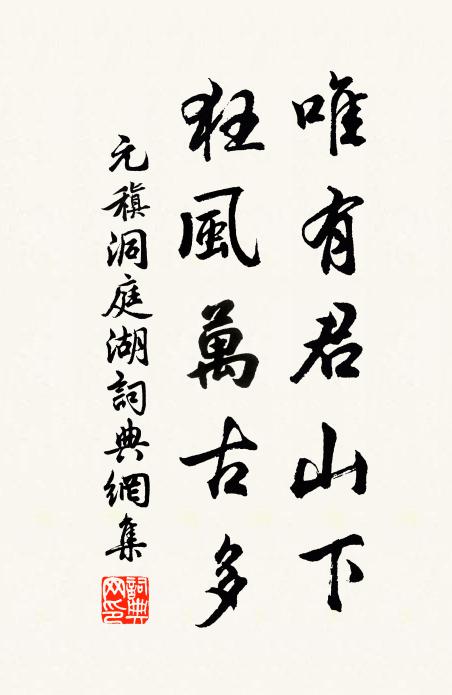 唯有君山下
狂風萬古多
元稹洞庭湖詞典網集
詞典网印